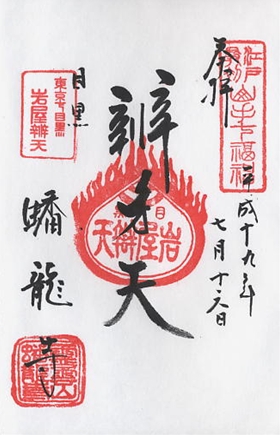 奉拝
江戸
山手七福神
平成十九年
七月十六日
辨才天
目黒
岩屋辨天
目黒
東京下目黒
岩屋辨天
蟠龍寺